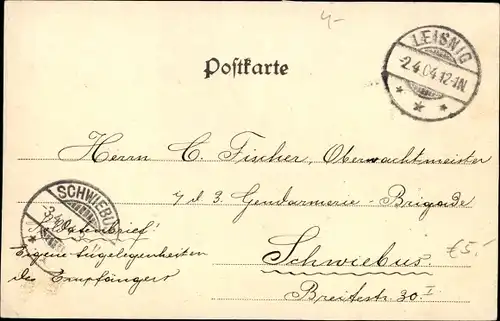 4-
LEISNIG
2.4.04.12-1N.
* * *
Postkarte
Herrn C. Fischer, Oberwachtmeister
d. 3. Gendarmerie-Brigade
SCHWIEBUS
Soldatenbrief
Eigene Angelegenheiten
des Empfängers
Schwiebus
£5.-
Breitestr. 30 I